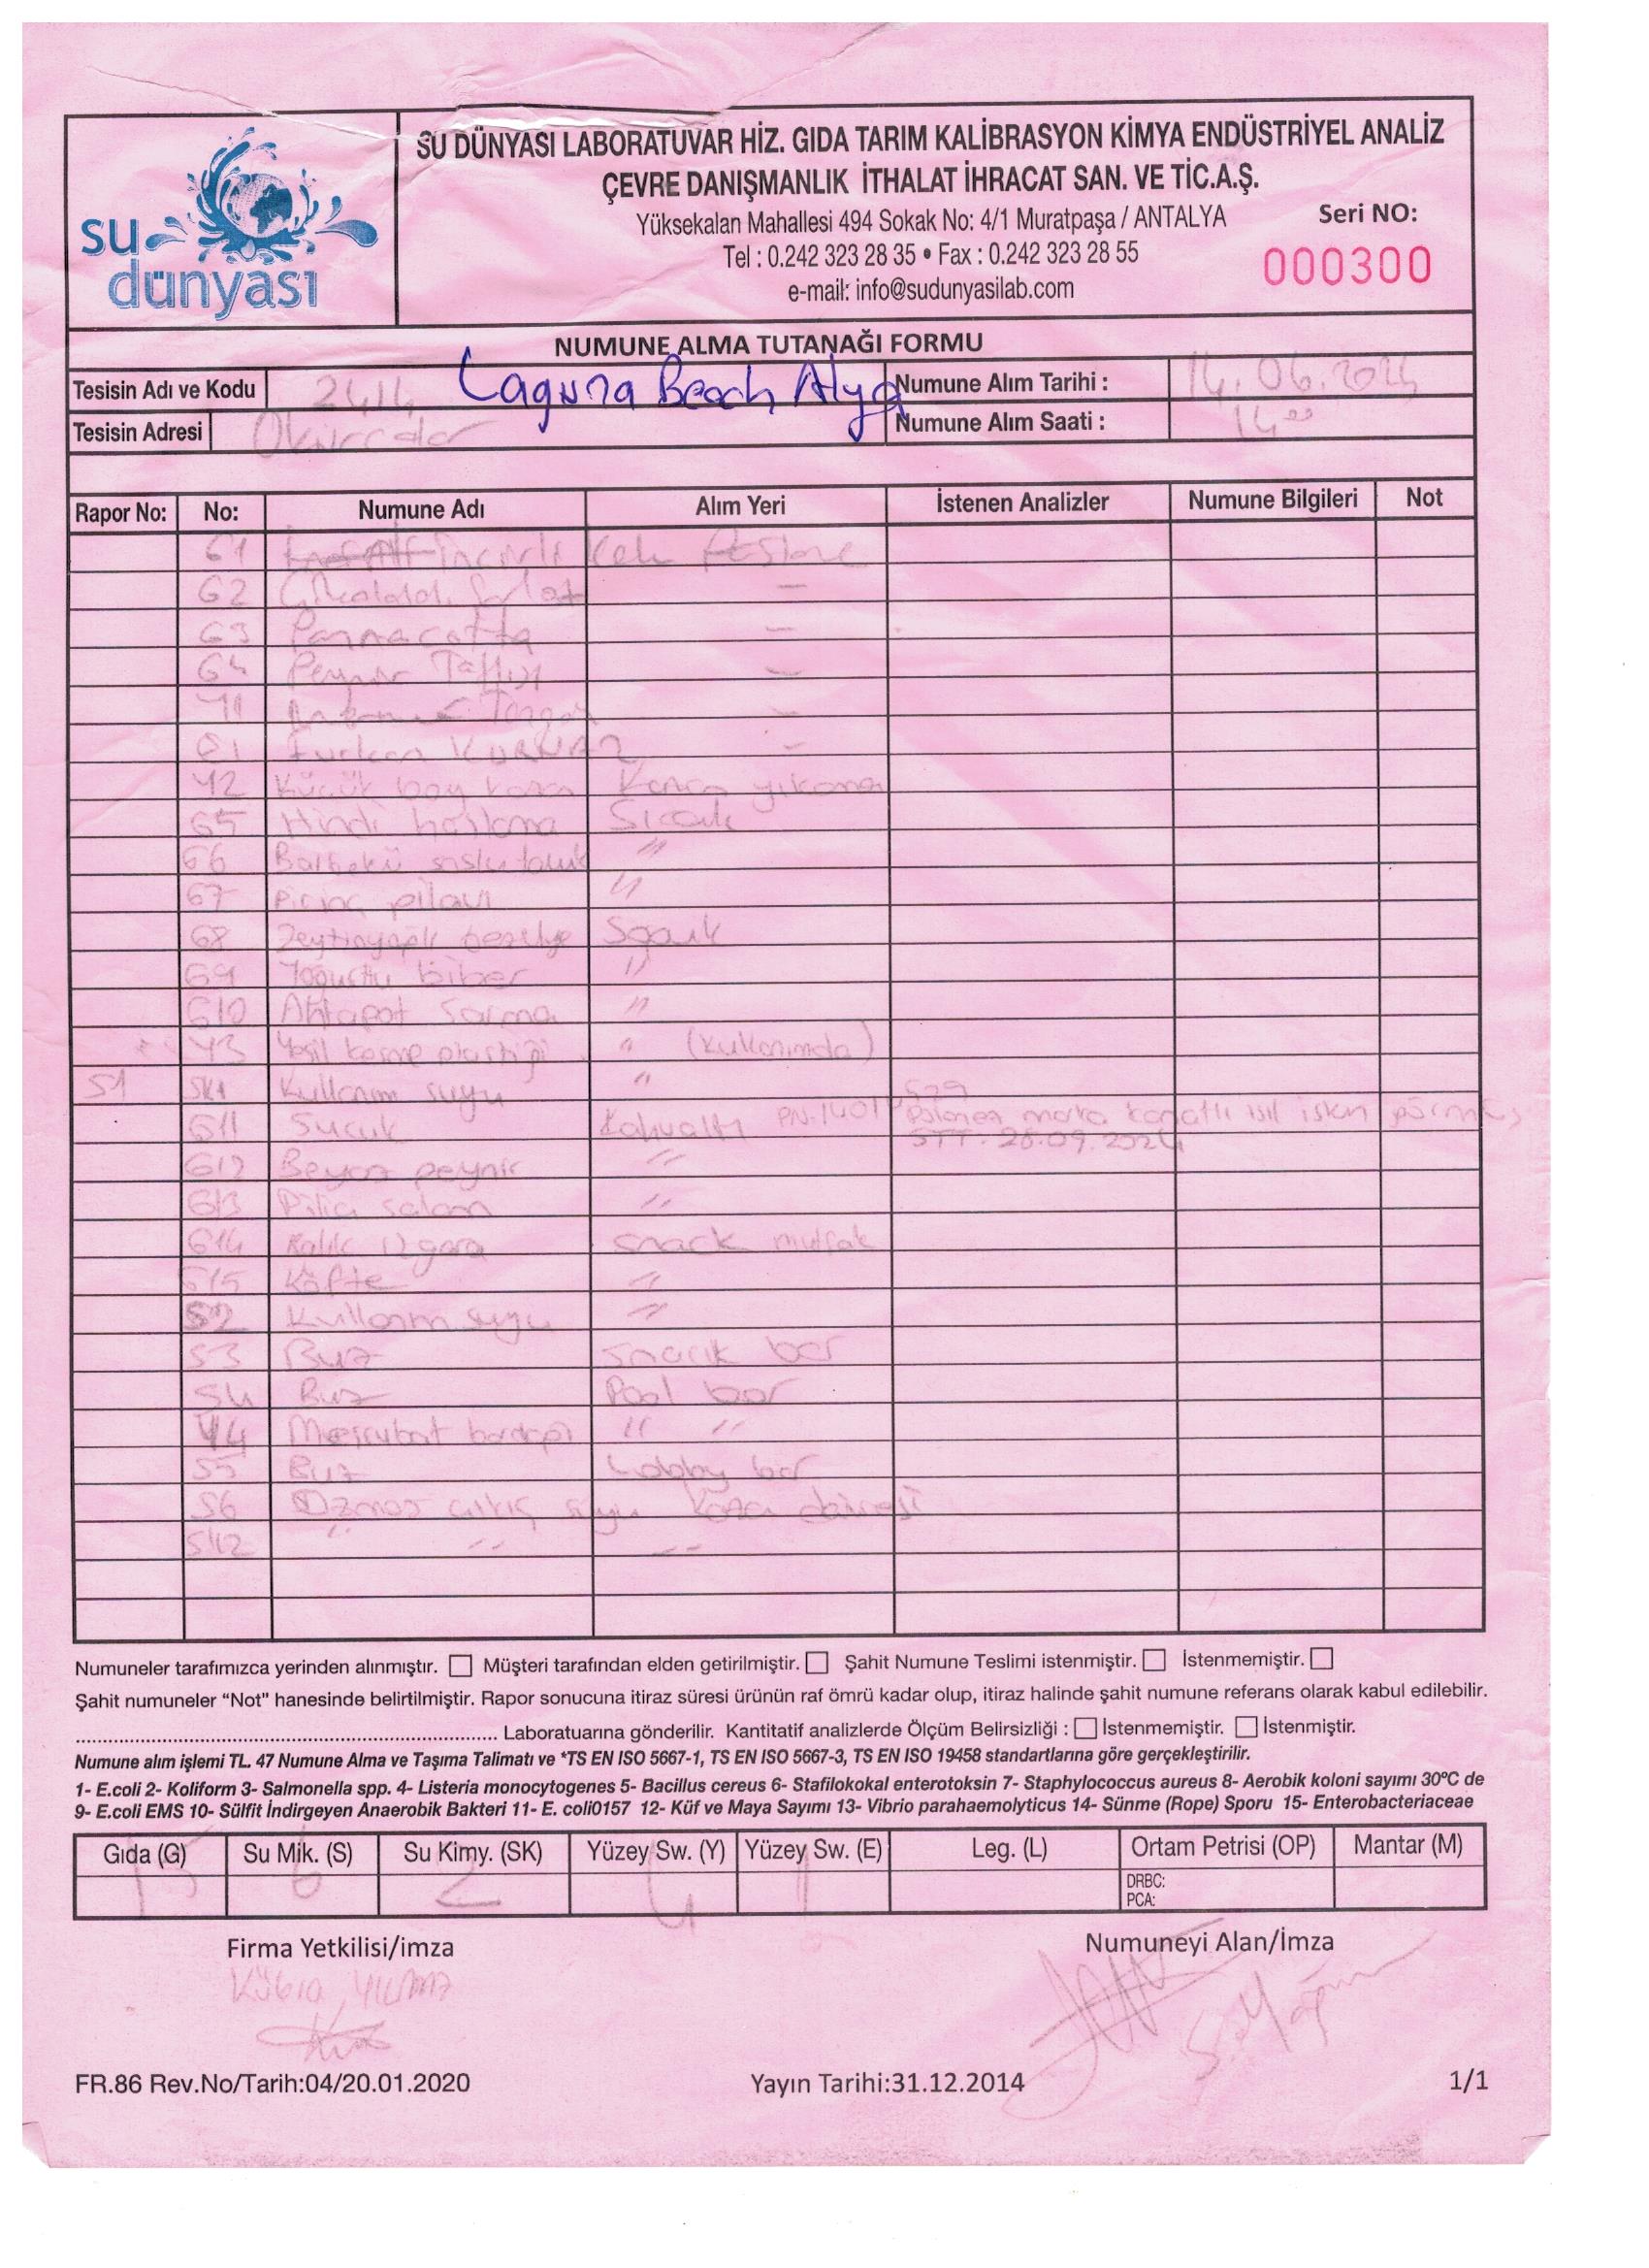 su
dünyası
SU DÜNYASI LABORATUVAR HİZ. GIDA TARIM KALİBRASYON KİMYA ENDÜSTRİYEL ANALİZ
ÇEVRE DANIŞMANLIK İTHALAT İHRACAT SAN. VE TİC.A.Ş.
Yüksekalan Mahallesi 494 Sokak No: 4/1 Muratpaşa / ANTALYA
Tel : 0.242 323 28 35 • Fax : 0.242 323 28 55
e-mail: info@sudunyasilab.com
Seri NO:
000300
NUMUNE ALMA TUTANAĞI FORMU
Tesisin Adı ve Kodu 2414 Laguna Beach Alya Numune Alım Tarihi : 14.06.2024
Tesisin Adresi Okurcalar Numune Alım Saati : 14 00
Rapor No: No: Numune Adı Alım Yeri İstenen Analizler Numune Bilgileri Not
G1 İncirli Kek Pastane
G2 –
G3 Pannacotta –
G4 Peynir Tatlısı –
Y1 –
E1 Furkan –
Y2 Küçük boy kazan Kazan yıkama
G5 Hindi haşlama Sıcak
G6 Barbekü soslu tavuk "
G7 Pirinç pilavı "
G8 Zeytinyağlı bezelye Soğuk
G9 Yoğurtlu biber "
G10 Ahtapot Sarma "
Y3 Yeşil kesme plastiği " (kullanımda)
S1 SK1 Kullanım suyu "
G11 Sucuk Kahvaltı PN:1401 Polonez marka kanatlı ısıl işlem görmüş
STT: 28.09.2024
G12 Beyaz peynir "
G13 Piliç salam "
G14 Balık ızgara snack mutfak
G15 Köfte "
S2 Kullanım suyu "
S3 Buz snack bar
S4 Buz Pool bar
Y4 Meşrubat bardağı " "
S5 Buz Lobby bar
S6 Ozmos çıkış suyu Kazan dairesi
SK2 " " "
Numuneler tarafımızca yerinden alınmıştır. Müşteri tarafından elden getirilmiştir. Şahit Numune Teslimi istenmiştir. İstenmemiştir.
Şahit numuneler “Not” hanesinde belirtilmiştir. Rapor sonucuna itiraz süresi ürünün raf ömrü kadar olup, itiraz halinde şahit numune referans olarak kabul edilebilir.
.......................................................................... Laboratuarına gönderilir. Kantitatif analizlerde Ölçüm Belirsizliği : İstenmemiştir. İstenmiştir.
Numune alım işlemi TL. 47 Numune Alma ve Taşıma Talimatı ve *TS EN ISO 5667-1, TS EN ISO 5667-3, TS EN ISO 19458 standartlarına göre gerçekleştirilir.
1- E.coli 2- Koliform 3- Salmonella spp. 4- Listeria monocytogenes 5- Bacillus cereus 6- Stafilokokal enterotoksin 7- Staphylococcus aureus 8- Aerobik koloni sayımı 30ºC de
9- E.coli EMS 10- Sülfit İndirgeyen Anaerobik Bakteri 11- E. coli0157 12- Küf ve Maya Sayımı 13- Vibrio parahaemolyticus 14- Sünme (Rope) Sporu 15- Enterobacteriaceae
Gıda (G) Su Mik. (S) Su Kimy. (SK) Yüzey Sw. (Y) Yüzey Sw. (E) Leg. (L) Ortam Petrisi (OP) Mantar (M)
15 6 2 4 1 DRBC:
PCA:
Firma Yetkilisi/imza Numuneyi Alan/İmza
Kübra YILMAZ
FR.86 Rev.No/Tarih:04/20.01.2020 Yayın Tarihi:31.12.2014 1/1